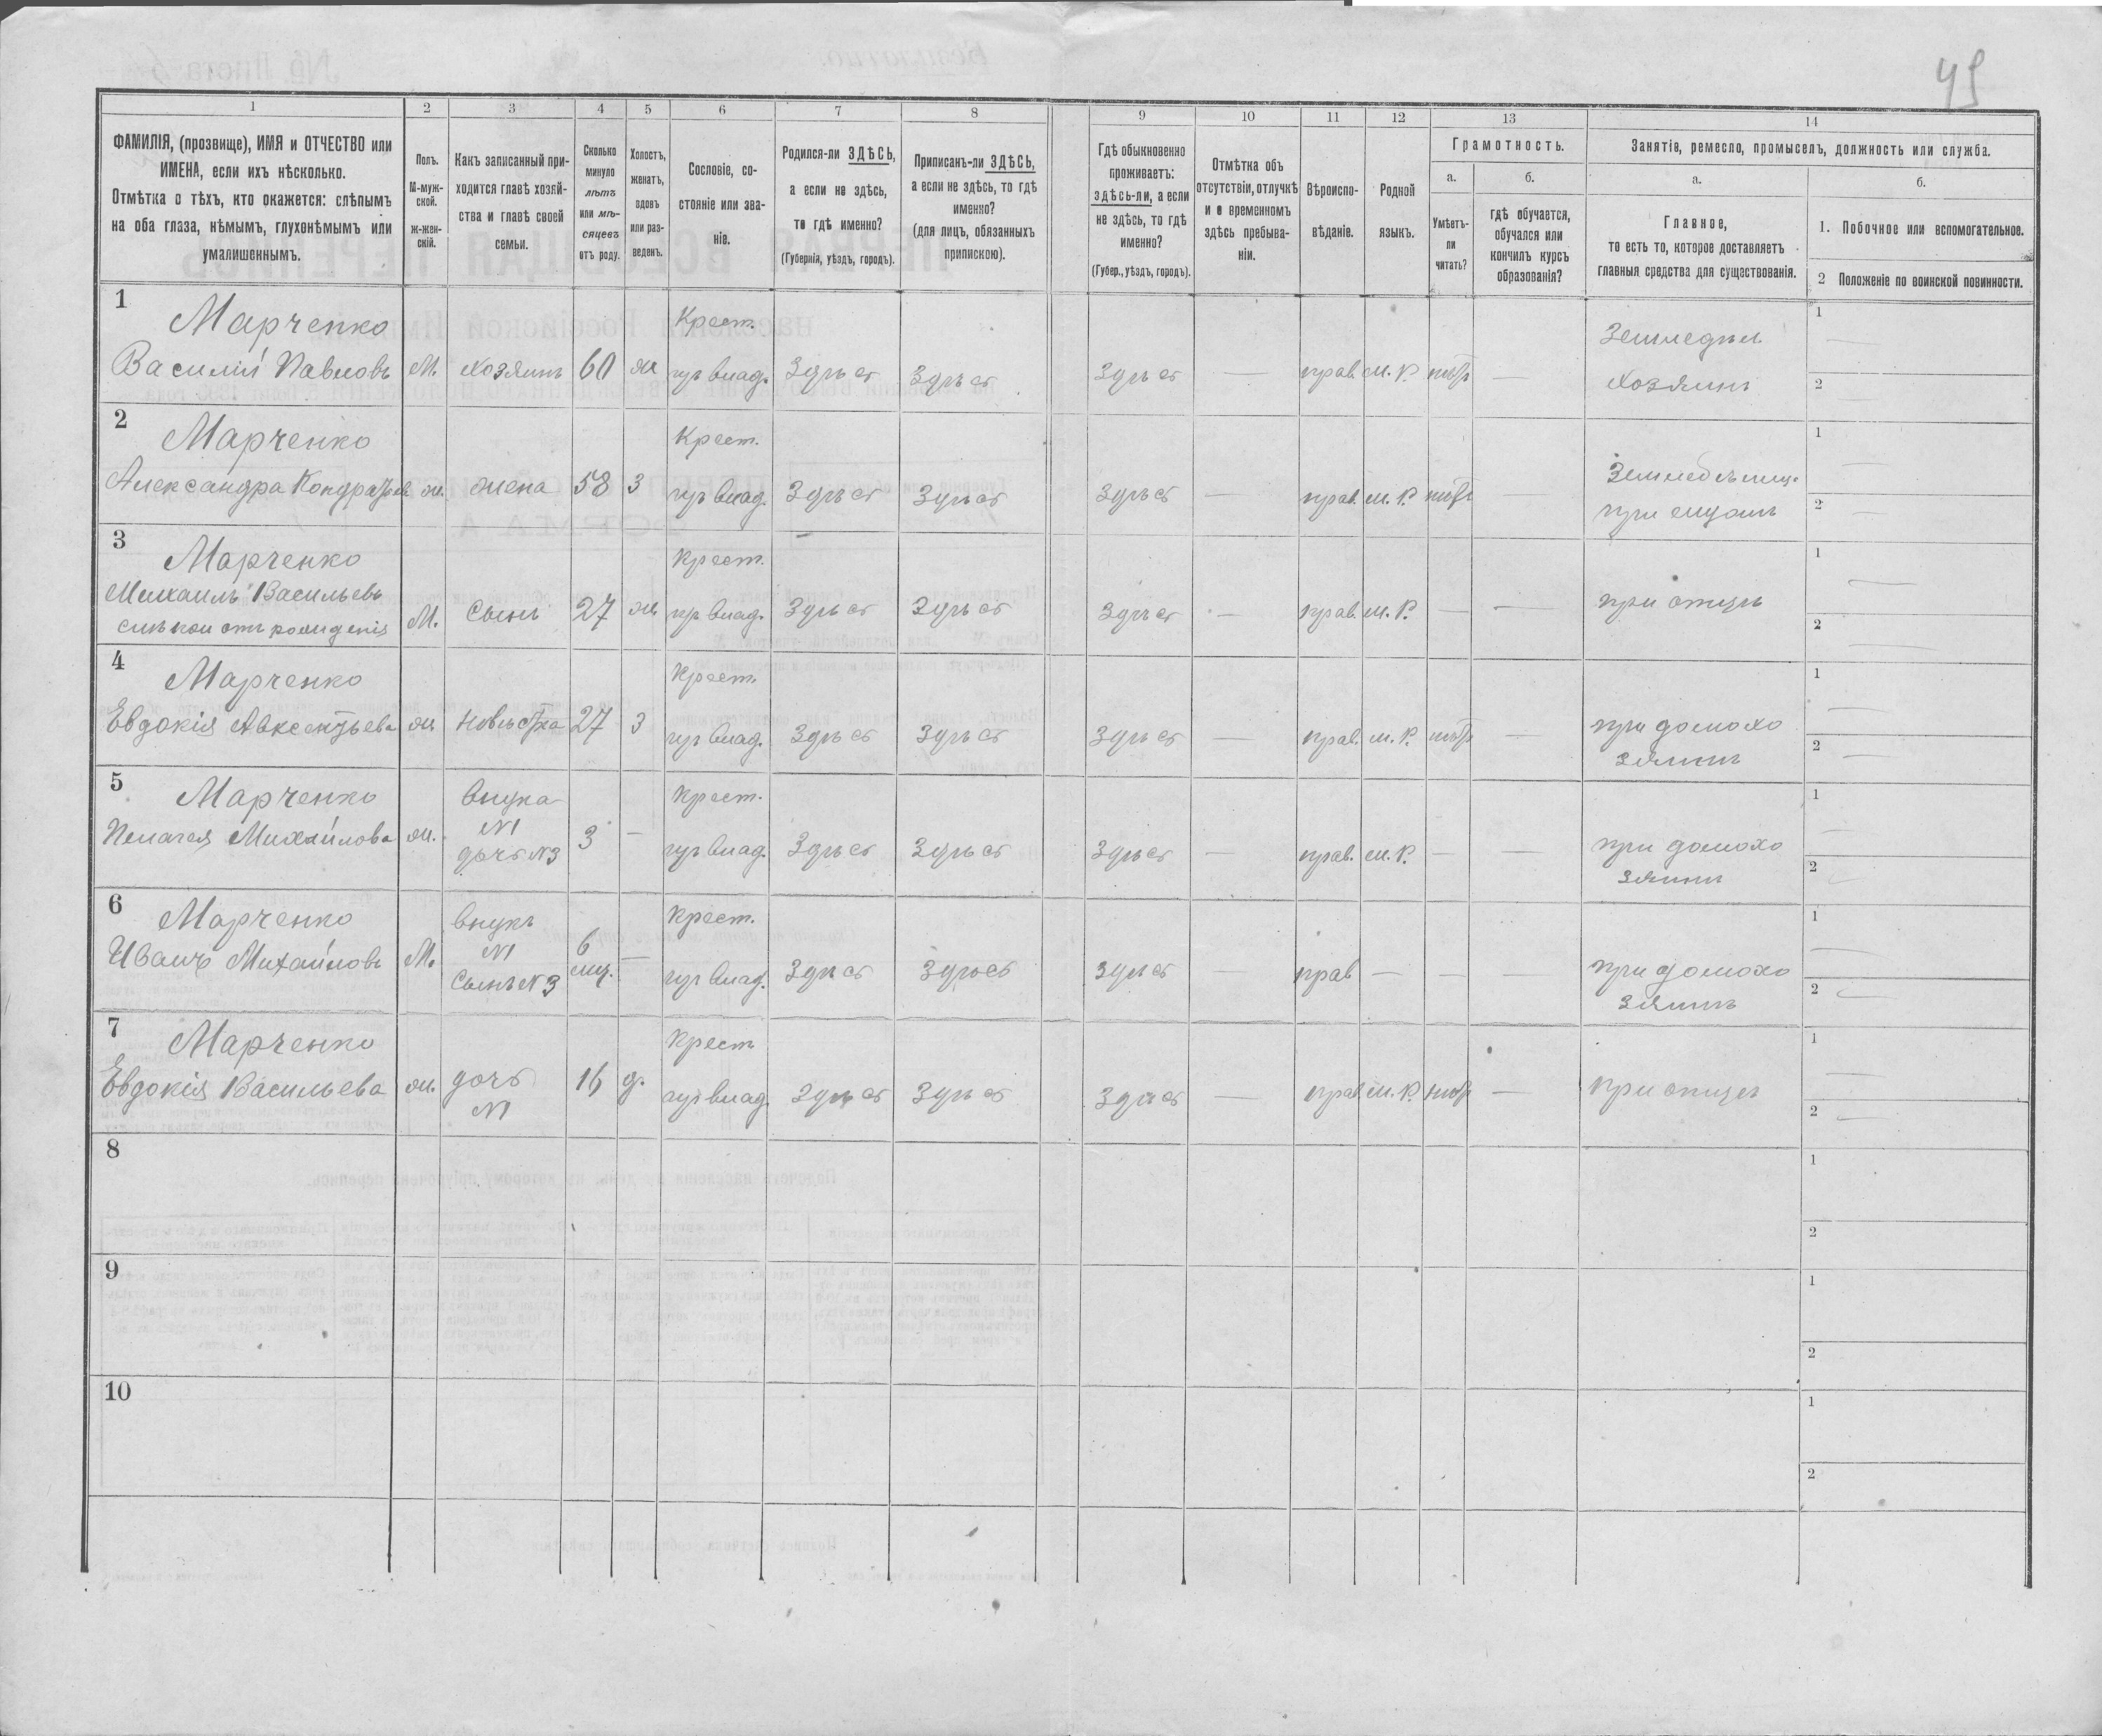 49
1 2 3 4 5 6 7 8 9 10 11 12 13 14
ФАМИЛІЯ, (прозвище), ИМЯ и ОТЧЕСТВО или
ИМЕНА, если ихъ нѣсколько.
Отмѣтка о тѣхъ, кто окажется: слѣпымъ
на оба глаза, нѣмымъ, глухонѣмымъ или
умалишеннымъ.
Полъ.
М-муж-
ской.
ж-жен-
скій.
Какъ записанный при-
ходится главѣ хозяй-
ства и главѣ своей
семьи.
Сколько
минуло
лѣтъ
или мѣ-
сяцевъ
отъ роду.
Холостъ,
женатъ,
вдовъ
или раз-
веденъ.
Сословіе, со-
стояніе или зва-
ніе.
Родился-ли ЗДѢСЬ,
а если не здѣсь,
то гдѣ именно?
(Губернія, уѣздъ, городъ).
Приписанъ-ли ЗДѢСЬ,
а если не здѣсь, то гдѣ
именно?
(для лицъ, обязанныхъ
припискою).
Гдѣ обыкновенно
проживаетъ:
здѣсь-ли, а если
не здѣсь, то гдѣ
именно?
(Губер., уѣздъ, городъ).
Отмѣтка объ
отсутствіи, отлучкѣ
и о временномъ
здѣсь пребыва-
ніи.
Вѣроиспо-
вѣданіе.
Родной
языкъ.
Грамотность.
а.
Умѣетъ-
ли
читать?
б.
гдѣ обучается,
обучался или
кончилъ курсъ
образованія?
Занятіе, ремесло, промыселъ, должность или служба.
а.
Главное,
то есть то, которое доставляетъ
главныя средства для существованія.
б.
1. Побочное или вспомогательное.
2 Положеніе по воинской повинности.
1
Марченко Крест. Земледѣл 1 —
Василій Павловъ М. хозяинъ 60 ж Здѣсь Здѣсь Здѣсь — прав. м. Р. нѣтъ — хозяинъ 2 —
2
Марченко Крест. 1 —
Александра ж. жена 58 З Здѣсь Здѣсь Здѣсь — прав. м. Р. нѣтъ 2 —
3
Марченко Крест. 1 —
Михаилъ Васильевъ
слѣпой отъ рожденія М. Сынъ 27 ж Здѣсь Здѣсь Здѣсь — прав. м. Р. — — при отцѣ 2 —
4
Марченко Крест. 1 —
Евдокія Авксентьева ж Невѣстка 27 З Здѣсь Здѣсь Здѣсь — прав. м. Р. нѣтъ — при домохо
зяинѣ 2 —
5
Марченко внука Крест. 1 —
Пелагея Михайлова ж. N1
дочь N3 3 — Здѣсь Здѣсь Здѣсь — прав. м. Р. — — при домохо
зяинѣ 2 —
6
Марченко внукъ Крест. 1 —
Иванъ Михайловъ М. N1
Сынъ N3 6
мц. — Здѣсь Здѣсь Здѣсь — прав — — — при домохо
зяинѣ 2 —
7
Марченко Крест 1 —
Евдокія Васильева ж. дочь
N1 16 д. Здѣсь Здѣсь Здѣсь — прав м. Р. нѣтъ — при отцѣ 2 —
8 1
2
9 1
2
10 1
2